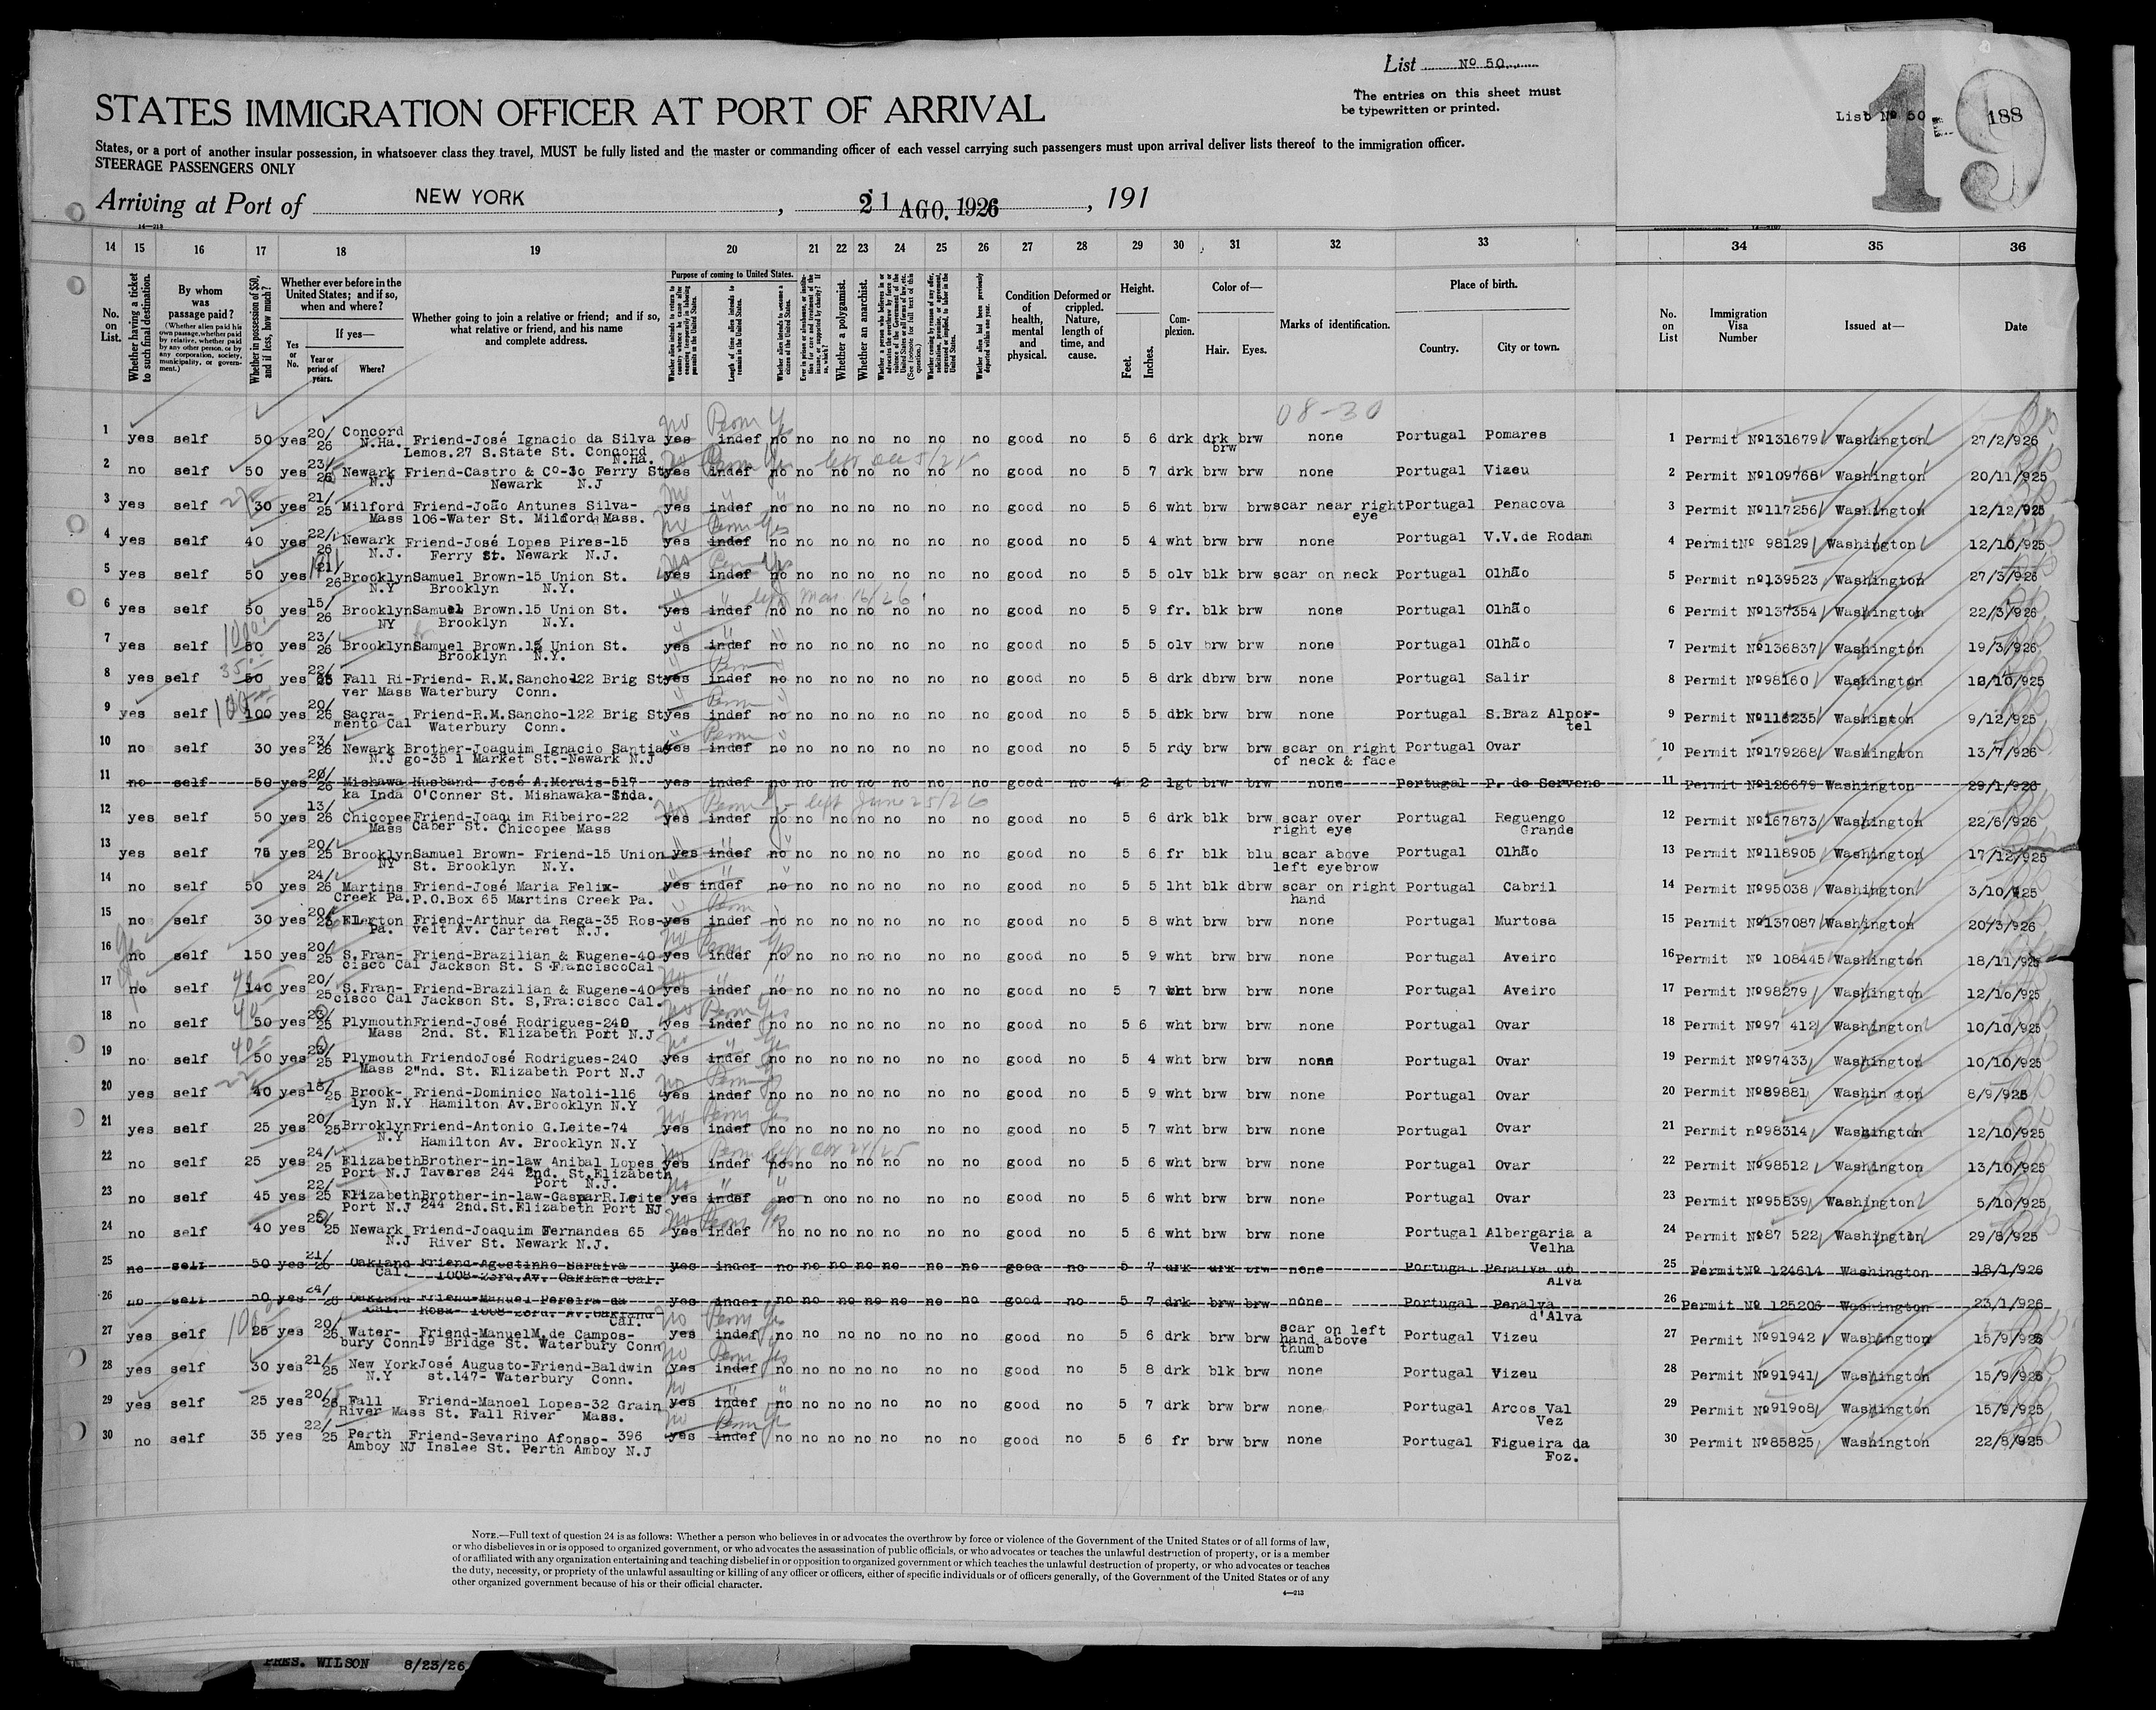 List No 50
The entries on this sheet must
be typewritten or printed.
List No 50
188
19
STATES IMMIGRATION OFFICER AT PORT OF ARRIVAL
States, or a port of another insular possession, in whatsoever class they travel, MUST be fully listed and the master or commanding officer of each vessel carrying such passengers must upon arrival deliver lists thereof to the immigration officer.
STEERAGE PASSENGERS ONLY
Arriving at Port of NEW YORK, 21 AGO. 1926, 191
14 15 16 17 18 19 20 21 22 23 24 25 26 27 28 29 30 31 32 33 34 35 36
No. on List.
Whether having a ticket to such final destination.
By whom was passage paid?
(Whether alien paid his own passage, whether paid by relative, whether paid by any other person, or by any corporation, society, municipality, or government.)
Whether in possession of $50, and if less, how much?
Whether ever before in the United States; and if so, when and where?
If yes—
Yes or No.
Year or period of years.
Where?
Whether going to join a relative or friend; and if so, what relative or friend, and his name and complete address.
Purpose of coming to United States.
Length of time alien intends to remain in the United States.
Whether alien intends to become a citizen of the United States.
Whether a polygamist.
Whether an anarchist.
Condition of health, mental and physical.
Deformed or crippled. Nature, length of time, and cause.
Height.
Feet. Inches.
Complexion.
Color of—
Hair. Eyes.
Marks of identification.
Place of birth.
Country. City or town.
No. on List
Immigration Visa Number
Issued at—
Date
08-30
1 yes self 50 yes 20/26 Concord N.Ha. Friend-José Ignacio da Silva yes indef no no no no no no no good no 5 6 drk drk brw none Portugal Pomares 1 Permit No131679 Washington 27/2/926
Lemos.27 S.State St. Concord N.Ha. brw
2 no self 50 yes 23/26 Newark Friend-Castro & Co-30 Ferry St yes indef no no no no no no no good no 5 7 drk brw brw none Portugal Vizeu 2 Permit No109768 Washington 20/11/925
N.J Newark N.J
3 yes self 30 yes 21/25 Milford Friend-João Antunes Silva- yes indef no no no no no no no good no 5 6 wht brw brw scar near right Portugal Penacova 3 Permit No117256 Washington 12/12/925
Mass 106-Water St. Milford Mass. eye
4 yes self 40 yes 22/26 Newark Friend-José Lopes Pires-15 yes indef no no no no no no no good no 5 4 wht brw brw none Portugal V.V.de Rodam 4 Permit No 98129 Washington 12/10/925
N.J. Ferry St. Newark N.J.
5 yes self 50 yes 21/26 Brooklyn Samuel Brown-15 Union St. yes indef no no no no no no no good no 5 5 olv blk brw scar on neck Portugal Olhão 5 Permit no139523 Washington 27/3/926
N.Y Brooklyn N.Y.
6 yes self 50 yes 15/26 Brooklyn Samuel Brown.15 Union St. yes indef no no no no no no no good no 5 9 fr. blk brw none Portugal Olhão 6 Permit No137354 Washington 22/3/926
NY Brooklyn N.Y.
7 yes self 50 yes 23/26 Brooklyn Samuel Brown.15 Union St. yes indef no no no no no no no good no 5 5 olv brw brw none Portugal Olhão 7 Permit No136837 Washington 19/3/926
Brooklyn N.Y.
8 yes self 50 yes 22/25 Fall Ri- Friend- R.M.Sancho-122 Brig St yes indef no no no no no no no good no 5 8 drk dbrw brw none Portugal Salir 8 Permit No98160 Washington 12/10/925
ver Mass Waterbury Conn.
9 yes self 100 yes 20/26 Sacra- Friend-R.M.Sancho-122 Brig St yes indef no no no no no no no good no 5 5 drk brw brw none Portugal S.Braz Alpor- 9 Permit No116235 Washigton 9/12/925
mento Cal Waterbury Conn. tel
10 no self 30 yes 23/26 Newark Brother-Joaquim Ignacio Santia yes indef no no no no no no no good no 5 5 rdy brw brw scar on right Portugal Ovar 10 Permit No179268 Washington 13/7/926
N.J go-35 1 Market St.-Newark N.J of neck & face
11 no self 50 yes 20/26 Mishawa Husband- José A.Morais-517 yes indef no no no no no no no good no 4 2 lgt brw brw none Portugal P. de Servens 11 Permit No126679 Washington 29/1/926
ka Inda O'Conner St. Mishawaka-Inda.
12 yes self 50 yes 13/26 Chicopee Friend-Joaquim Ribeiro-22 yes indef no no no no no no no good no 5 6 drk blk brw scar over Portugal Reguengo 12 Permit No167873 Washington 22/6/926
Mass Caber St. Chicopee Mass right eye Grande
13 yes self 75 yes 20/25 Brooklyn Samuel Brown- Friend-15 Union yes indef no no no no no no no good no 5 6 fr blk blu scar above Portugal Olhão 13 Permit No118905 Washington 17/12/925
NY St. Brooklyn N.Y. left eyebrow
14 no self 50 yes 24/26 Martins Friend-José Maria Felix- yes indef no no no no no no no good no 5 5 lht blk dbrw scar on right Portugal Cabril 14 Permit No95038 Washington 3/10/925
Creek Pa. P.O.Box 65 Martins Creek Pa. hand
15 no self 30 yes Ellerton Friend-Arthur da Rega-35 Ros- yes indef no no no no no no no good no 5 8 wht brw brw none Portugal Murtosa 15 Permit No137087 Washington 20/3/926
Pa. velt Av. Carteret N.J.
16 no self 150 yes 20/25 S.Fran- Friend-Brazilian & Eugene-40 yes indef no no no no no no no good no 5 9 wht brw brw none Portugal Aveiro 16 Permit No 108445 Washington 18/11/925
cisco Cal Jackson St. S FranciscoCal
17 no self 140 yes 20/25 S.Fran- Friend-Brazilian & Eugene-40 yes indef no no no no no no no good no 5 7 wht brw brw none Portugal Aveiro 17 Permit No98279 Washington 12/10/925
cisco Cal Jackson St. S,Fra:cisco Cal.
18 no self 50 yes 23/25 Plymouth Friend-José Rodrigues-240 yes indef no no no no no no no good no 5 6 wht brw brw none Portugal Ovar 18 Permit No97 412 Washington 10/10/925
Mass 2nd. St. Elizabeth Port N.J
19 no self 50 yes 23/25 Plymouth FriendoJosé Rodrigues-240 yes indef no no no no no no no good no 5 4 wht brw brw none Portugal Ovar 19 Permit No97433 Washington 10/10/925
Mass 2"nd. St. Elizabeth Port N.J
20 yes self 40 yes 18/25 Brook- Friend-Dominico Natoli-116 yes indef no no no no no no no good no 5 9 wht brw brw none Portugal Ovar 20 Permit No89881 Washin ton 8/9/925
lyn N.Y Hamilton Av.Brooklyn N.Y
21 yes self 25 yes 20/25 Brroklyn Friend-Antonio G.Leite-74 yes indef no no no no no no no good no 5 7 wht brw brw none Portugal Ovar 21 Permit no98314 Washington 12/10/925
N.Y Hamilton Av. Brooklyn N.Y
22 no self 25 yes 24/25 Elizabeth Brother-in-law Anibal Lopes yes indef no no no no no no no good no 5 6 wht brw brw none Portugal Ovar 22 Permit No98512 Washington 13/10/925
Port N.J Tavares 244 2nd. St.Elizabeth
Port N.J.
23 no self 45 yes 22/25 Elizabeth Brother-in-law-GasparR.Leite yes indef no n ono no no no no good no 5 6 wht brw brw none Portugal Ovar 23 Permit No95839 Washington 5/10/925
Port N.J 244 2nd.St.Elizabeth Port NJ
24 no self 40 yes 25 Newark Friend-Joaquim Fernandes 65 yes indef no no no no no no no good no 5 6 wht brw brw none Portugal Albergaria a 24 Permit No87 522 Washington 29/8/925
N.J River St. Newark N.J. Velha
25 no self 50 yes 21/26 Oakland Friend-Agostinho Saraiva yes indef no no no no no no no good no 5 7 drk drk brw none Portugal Penalva do 25 PermitNo 124614 Washington 18/1/926
Cal. 1008-23rd.Av. Oakland Cal. Alva
26 no self 50 yes 24/26 Oakland Friend-Manuel Pereira da yes indef no no no no no no no good no 5 7 drk brw brw none Portugal Penalva 26 Permit No 125206 Washington 23/1/926
Cal. Rosa- 1008-23rd. Av.Oakland Cal. d'Alva
27 yes self 25 yes 20/26 Water- Friend-ManuelM.de Campos- yes indef no no no no no no no good no 5 6 drk brw brw scar on left Portugal Vizeu 27 Permit No91942 Washington 15/9/925
bury Conn 19 Bridge St. Waterbury Conn hand above
thumb
28 yes self 30 yes 21/25 New York José Augusto-Friend-Baldwin yes indef no no no no no no no good no 5 8 drk blk brw none Portugal Vizeu 28 Permit No91941 Washington 15/9/925
N.Y st.147- Waterbury Conn.
29 yes self 25 yes 20/26 Fall Friend-Manoel Lopes-32 Grain yes indef no no no no no no no good no 5 7 drk brw brw none Portugal Arcos Val 29 Permit No91908 Washington 15/9/925
River Mass St. Fall River Mass. Vez
30 no self 35 yes 22/25 Perth Friend-Severino Afonso- 396 yes indef no no no no no no no good no 5 6 fr brw brw none Portugal Figueira da 30 Permit No85825 Washington 22/8/925
Amboy NJ Inslee St. Perth Amboy N.J Foz.
NOTE.—Full text of question 24 is as follows: Whether a person who believes in or advocates the overthrow by force or violence of the Government of the United States or of all forms of law,
or who disbelieves in or is opposed to organized government, or who advocates the assassination of public officials, or who advocates or teaches the unlawful destruction of property, or is a member
of or affiliated with any organization entertaining and teaching disbelief in or opposition to organized government or which teaches the unlawful destruction of property, or who advocates or teaches
the duty, necessity, or propriety of the unlawful assaulting or killing of any officer or officers, either of specific individuals or of officers generally, of the Government of the United States or of any
other organized government because of his or their official character.
PRES. WILSON 8/23/26